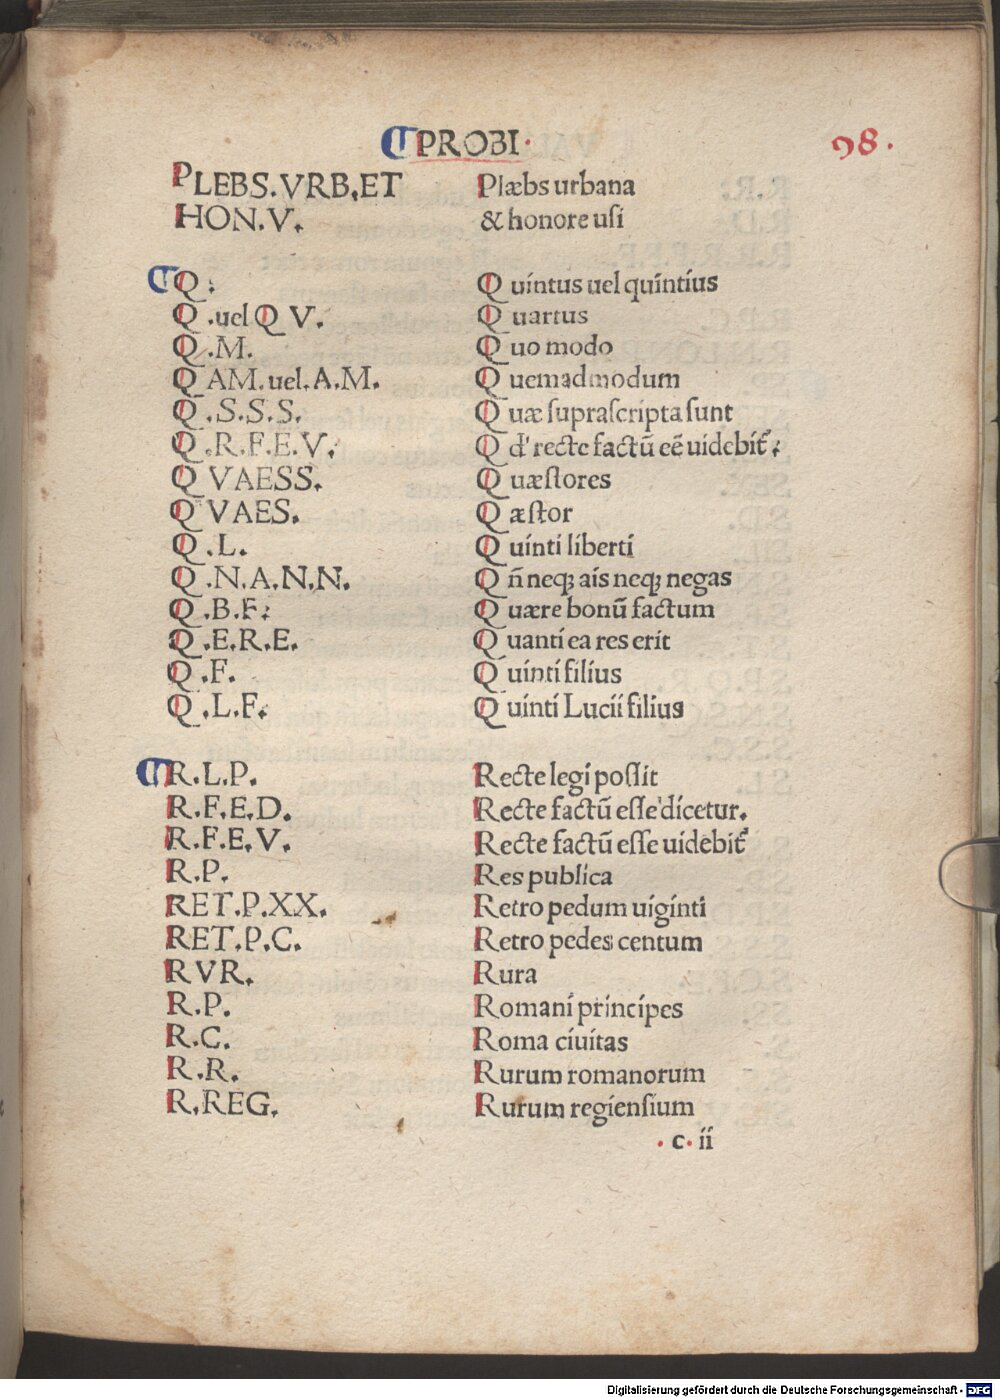 PROBI. 98.
PLEBS.VRB.ET Plæbs urbana
HON.V. & honore usi
Q. Quintus uel quintius
Q.uel QV. Quartus
Q.M. Quo modo
QAM.uel.A.M. Quemadmodum
Q.S.S.S. Quæ suprascripta sunt
Q.R.F.E.V. Qd' recte factū eē uidebit̄.
QVAESS. Quæstores
QVAES. Qæstor
Q.L. Quinti liberti
Q.N.A.N.N. Qn̄ neqꝫ ais neqꝫ negas
Q.B.F. Quære bonū factum
Q.E.R.E. Quanti ea res erit
Q.F. Quinti filius
Q.L.F. Quinti Lucii filius
R.L.P. Recte legi possit
R.F.E.D. Recte factū esse dicetur.
R.F.E.V. Recte factū esse uidebit̄
R.P. Res publica
RET.P.XX. Retro pedum uiginti
RET.P.C. Retro pedes centum
RVR. Rura
R.P. Romani principes
R.C. Roma ciuitas
R.R. Rurum romanorum
R.REG. Rurum regiensium
.c.ii
Digitalisierung gefördert durch die Deutsche Forschungsgemeinschaft - DFG